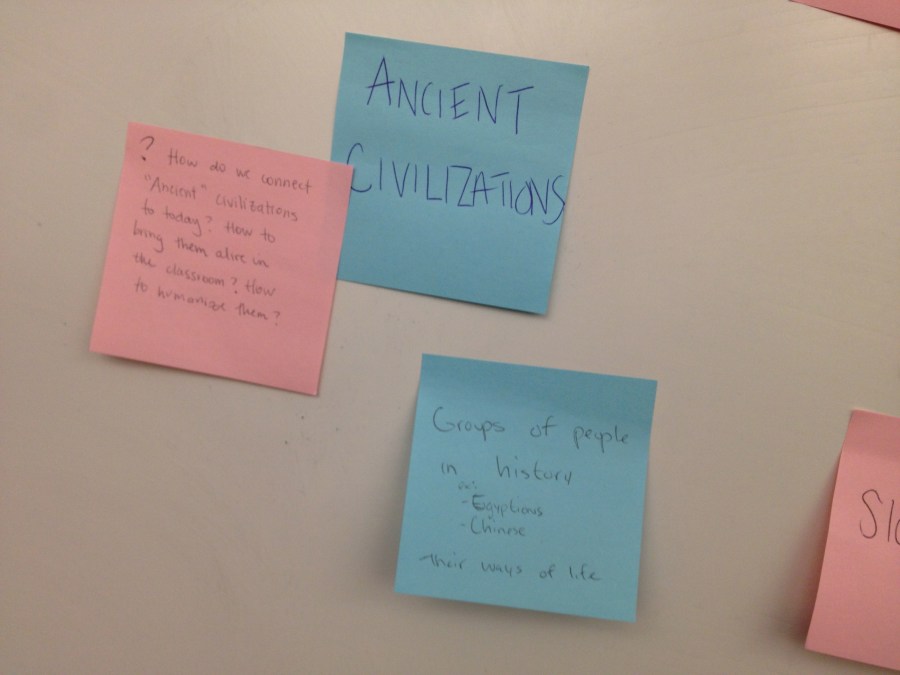 ANCIENT
CIVILIZATIONS
? How do we connect
"Ancient" civilizations
to today? How to
bring them alive in
the classroom? How
to humanize them?
Groups of people
in history
ex:
- Egyptians
- Chinese
their ways of life